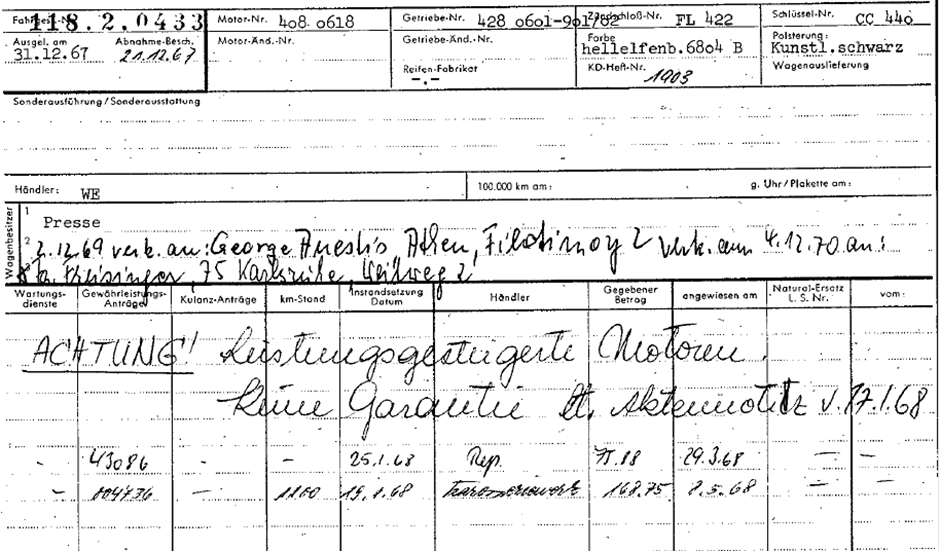 Fahrgest.-Nr. 118.2.0433 Motor-Nr. 408 0618 Getriebe-Nr. 428 0601-901/02 Zündschloß-Nr. FL 422 Schlüssel-Nr. CC 440
Ausgel. am Abnahme-Besch. Motor-Änd.-Nr. Getriebe-Änd.-Nr. Farbe Polsterung:
31.12.67 21.12.67 hellelfenb.6804 B Kunstl.schwarz
Reifen-Fabrikat KD-Heft-Nr. 1903 Wagenauslieferung
-.-
Sonderausführung / Sonderausstattung
Händler: WE 100.000 km am: g. Uhr / Plakette am:
Wagenbesitzer
1 Presse
2 2.12.69 verk. an: George Anestis Athen, Filotimoy 2 verk. am 4.12.70 an:
75 Karlsruhe, 2
Wartungsdienste Gewährleistungs-Anträge Kulanz-Anträge km-Stand Instandsetzung Datum Händler Gegebener Betrag angewiesen am Natural-Ersatz L. S. Nr. vom:
ACHTUNG! Leistungsgesteigerte Motoren.
Keine Garantie lt. Aktennotitz v. 17.1.68
- 43086 - - 25.1.68 Rep. 29.3.68 - -
- - 1100 168.75 8.5.68 - -